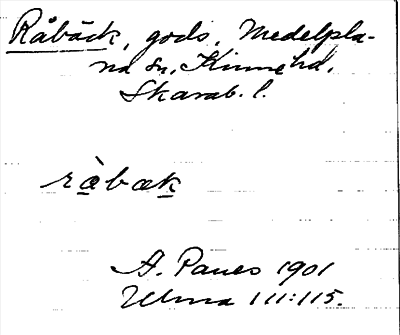 Råbäck, gods, Medelpla-
na sn, Kinne hd,
Skarab. l.
ràbæk
A. Paues 1901
Ulma 111:115.